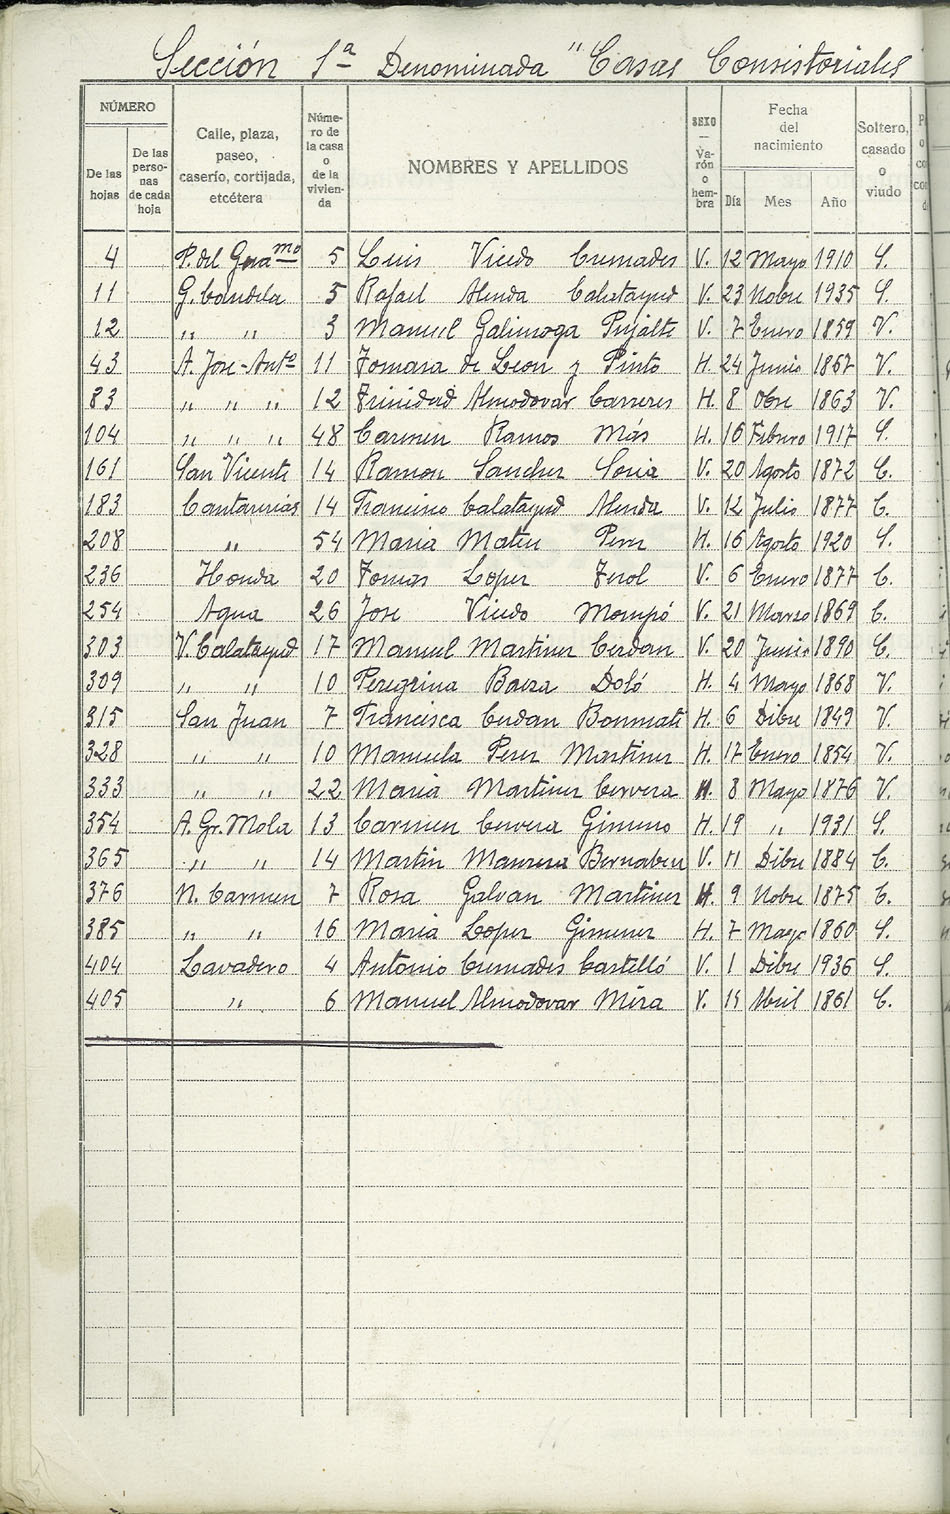 Sección 1ª Denominada "Casas Consistoriales
NÚMERO
De las hojas
De las perso- nas de cada hoja
Calle, plaza, paseo, caserío, cortijada, etcétera
Núme- ro de la casa o de la vivien- da
NOMBRES Y APELLIDOS
SEXO — Va- rón o hem- bra
Fecha del nacimiento
Día
Mes
Año
Soltero, casado o viudo
4 P. del Genmo 5 Luis Vicedo Cremades V. 12 Mayo 1910 S.
11 G. Candela 5 Rafael Alenda Calatayud V. 23 Nobre 1935 S.
12 " " 3 Manuel Galinsoga Pujalte V. 7 Enero 1859 V.
43 A. Jose-Antº 11 Tomasa de Leon y Pinto H. 24 Junio 1867 V.
83 " " " 12 Trinidad Almodovar Carreres H. 8 Obre 1863 V.
104 " " " 48 Carmen Ramos Más H. 16 Febrero 1917 S.
161 San Vicente 14 Ramon Sanchez Soria V. 20 Agosto 1872 C.
183 Cantarerias 14 Francisco Calatayud Alenda V. 12 Julio 1877 C.
208 " 54 Maria Mateu Perez H. 16 Agosto 1920 S.
236 Honda 20 Tomas Lopez Terol V. 6 Enero 1877 C.
254 Agua 26 Jose Vicedo Mompó V. 21 Marzo 1869 C.
303 V. Calatayud 17 Manuel Martinez Cerdan V. 20 Junio 1890 C.
309 " " 10 Peregrina Baeza Doló H. 4 Mayo 1868 V.
315 San Juan 7 Francisca Cerdan Bonmati H. 6 Dibre 1849 V.
328 " " 10 Manuela Perez Martinez H. 17 Enero 1854 V.
333 " " 22 Maria Martinez Cervera H. 8 Mayo 1876 V.
354 A. Gr. Mola 13 Carmen Cervera Gimeno H. 19 " 1931 S.
365 " " 14 Martin Manresa Bernabeu V. 11 Dibre 1884 C.
376 N. Carmen 7 Rosa Galvan Martinez H. 9 Nobre 1875 C.
385 " " 16 Maria Lopez Gimenez H. 7 Mayo 1860 S.
404 Lavadero 4 Antonio Cremades Castelló V. 1 Dibre 1936 S.
405 " 6 Manuel Almodovar Mira V. 15 Abril 1861 C.